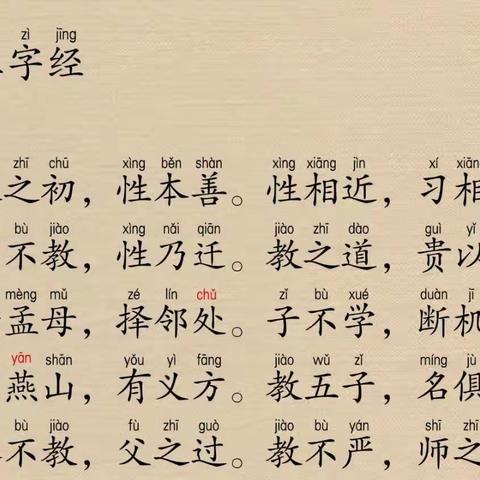 zì jīng
字经
zhī chū xìng běn shàn xìng xiāng jìn xí xiāng
之初，性本善。性相近，习相
bù jiào xìng nǎi qiān jiào zhī dào guì yǐ
不教，性乃迁。教之道，贵以
mèng mǔ zé lín chǔ zǐ bù xué duàn jī
孟母，择邻处。子不学，断机
yān shān yǒu yì fāng jiào wǔ zǐ míng jù
燕山，有义方。教五子，名俱
bù jiào fù zhī guò jiào bù yán shī zhī
不教，父之过。教不严，师之